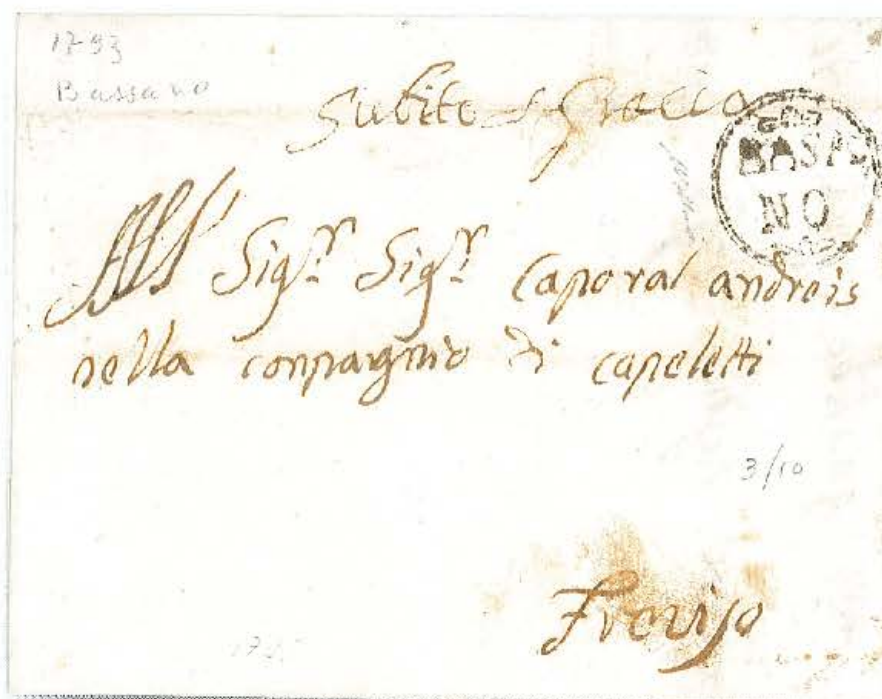 1793
Bassano
Subito di Gracia
BASSA
NO
All' Sigr. Sigr. Caporal andreis
nella conpagnia di capeletti
3/10
Treviso